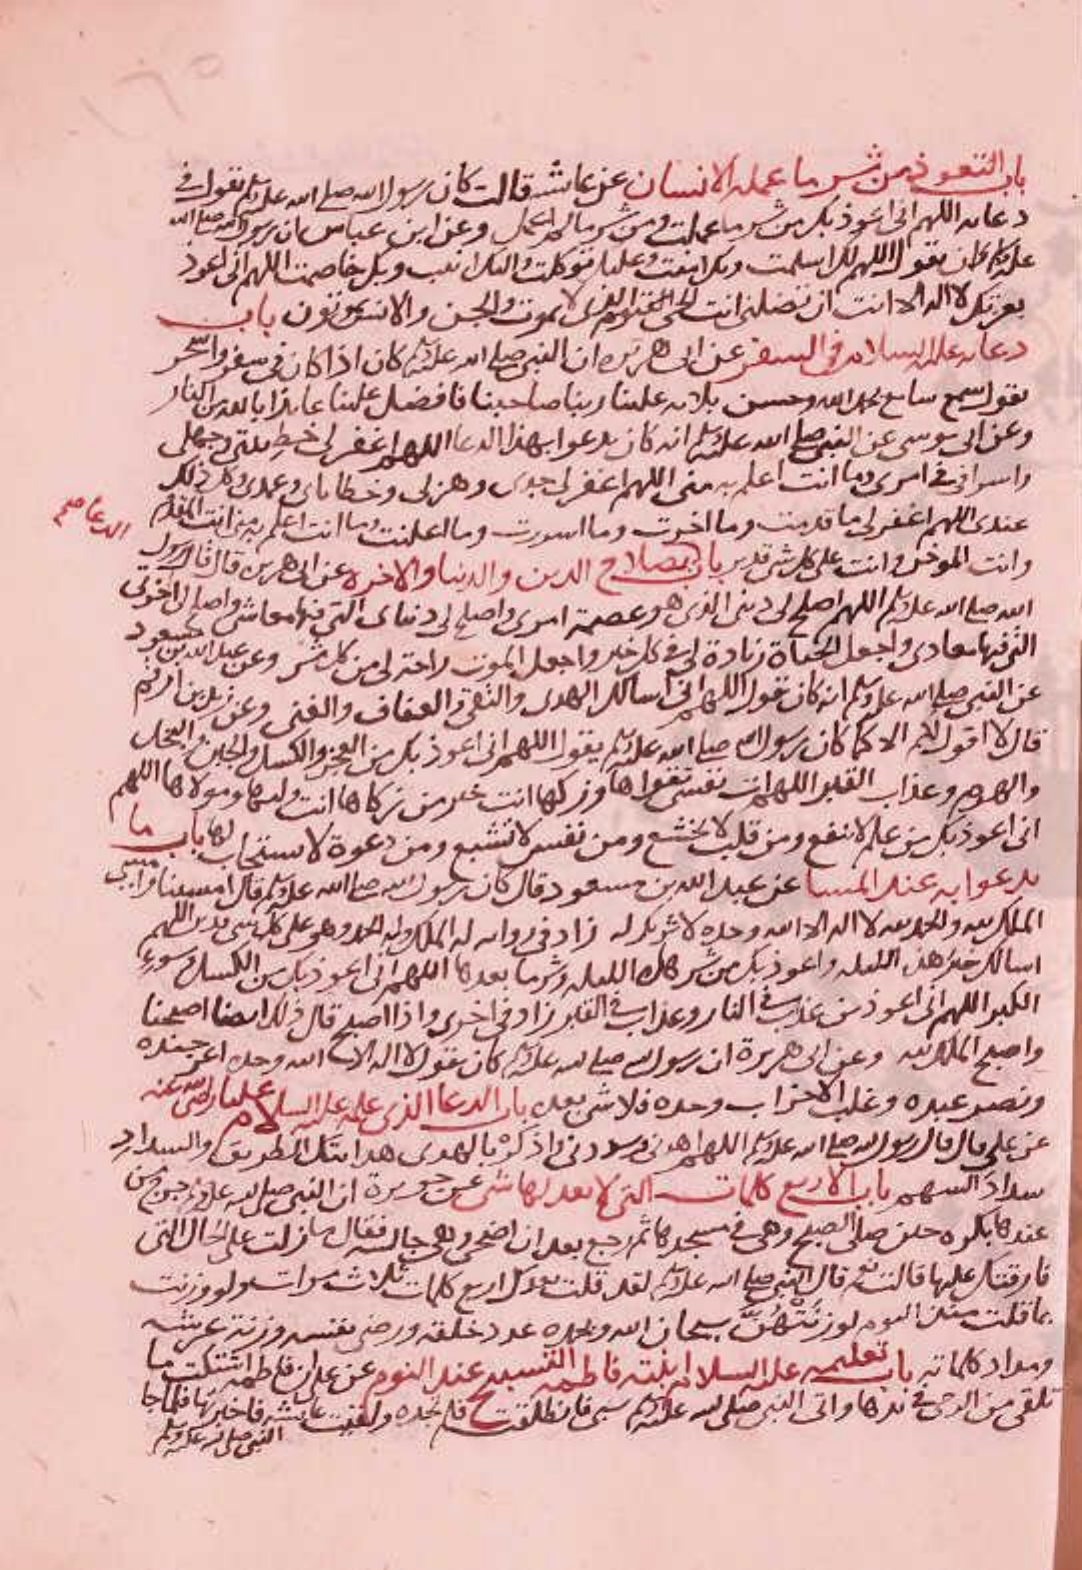 باب التعوذ من شر ما عمله الانسان عن عائشه قالت كان رسول الله صلى الله عليه وسلم يقول في
دعائه اللهم انى اعوذ بك من شر ما عملت ومن شر ما لم اعمل وعن ابن عباس ان رسول الله صلى الله
عليه وسلم كان يقول اللهم لك اسلمت وبك امنت وعليك توكلت واليك انبت وبك خاصمت اللهم انى اعوذ
بعزتك لا اله الا انت ان تضلنى انت الحى القيوم الذى لا يموت والجن والانس يموتون باب
دعائه عليه السلام فى السفر عن ابى هريره ان النبى صلى الله عليه وسلم كان اذا كان فى سفر واسحر
يقول سمع سامع بحمد الله وحسن بلائه علينا ربنا صاحبنا فافضل علينا عايذا بالله من النار
وعن ابى موسى عن النبى صلى الله عليه وسلم انه كان يدعوا بهذا الدعا اللهم اغفر لى خطيئتى وجهلى
واسرافى فى امرى وما انت اعلم به منى اللهم اغفر لى جدى وهزلى وخطاياى وعمدى وكل ذلك
عندى اللهم اغفر لى ما قدمت وما اخرت وما اسررت وما اعلنت وما انت اعلم به منى انت المقدم
وانت الموخر وانت على كل شى قدير باب اصلاح الدين والدنيا والاخرة عن ابى هريرة قال قال رسول
الله صلى الله عليه وسلم اللهم اصلح لى دينى الذى هو عصمة امرى واصلح لى دنياى التى فيها معاشى واصلح لى اخرتى
التى فيها معادى واجعل الحياة زيادة لى فى كل خير واجعل الموت راحة لى من كل شر وعن عبد الله بن مسعود
عن النبى صلى الله عليه وسلم انه كان يقول اللهم انى اسالك الهدى والتقى والعفاف والغنى وعن زيد بن ارقم
قال لا اقول لكم الا كما كان رسول الله صلى الله عليه وسلم يقول اللهم انى اعوذ بك من العجز والكسل والجبن والبخل
والهرم وعذاب القبر اللهم ات نفسى تقواها وزكها انت خير من زكاها انت وليها ومولاها اللهم
انى اعوذ بك من علم لا ينفع ومن قلب لا يخشع ومن نفس لا تشبع ومن دعوة لا يستجاب لها باب ما
يدعوا به عند المسا عن عبد الله بن مسعود قال كان رسول الله صلى الله عليه وسلم قال امسينا وامسى
الملك لله والحمد لله لا اله الا الله وحده لا شريك له زاد فى روايه له الملك وله الحمد وهو على كل شى قدير اللهم
اسالك خير هذه الليله واعوذ بك من شر هذه الليله وشر ما بعدها اللهم انى اعوذ بك من الكسل وسوء
الكبر اللهم انى اعوذ من عذاب فى النار وعذاب فى القبر زاد فى اخرى واذا اصبح قال ذلك ايضا اصبحنا
واصبح الملك لله وعن ابى هريرة ان رسول الله صلى الله عليه وسلم كان يقول لا اله الا الله وحده اعز جنده
ونصر عبده وغلب الاحزاب وحده فلا شى بعده باب الدعا الذى علمه عليه السلام عليا رضى الله عنه
عن على قال قال رسول الله صلى الله عليه وسلم اللهم اهدنى وسددنى واذكر بالهدى هدايتك الطريق والسداد
سداد السهم باب الاربع كلمات التى لا يعدلها شى عن جويرية ان النبى صلى الله عليه وسلم خرج من
عندها بكرة حين صلى الصبح وهى فى مسجدها ثم رجع بعد ان اضحى وهى جالسه فقال ما زلت على الحال التى
فارقتك عليها قالت نعم قال النبى صلى الله عليه وسلم لقد قلت بعدك اربع كلمات ثلاث مرات لو وزنت
بما قلت منذ اليوم لوزنتهن سبحان الله وبحمده عدد خلقه ورضى نفسه وزنة عرشه
ومداد كلماته باب تعليمه عليه السلام ابنته فاطمه التسبيح عند النوم عن على ان فاطمه اشتكت ما
تلقى من الرحى فى يدها واتى النبى صلى الله عليه وسلم سبى فانطلقت فلم تجده ولقيت عايشه فاخبرتها فلما جا
النبى صلى الله عليه وسلم